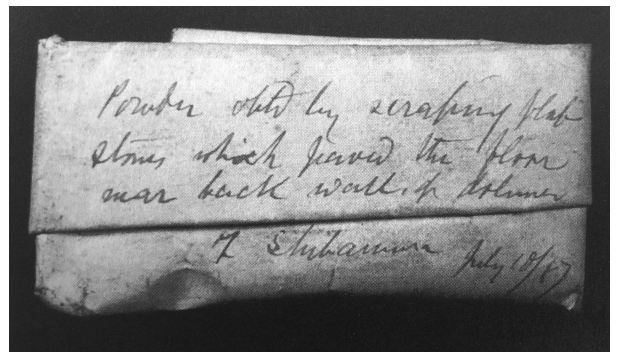 Powder obtd by scraping flat
stones which paved the floor
near back wall of dolmen
of Shibamura July 18/87